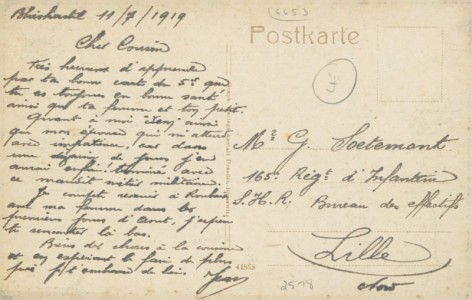 11/7/1919
Cher Cousin
très heureux d'apprendre
par ta bonne carte du 5ct que
tu es toujours en bonne santé
ainsi que ta femme et ton petit.
Quant à moi idem ainsi
que mon épouse qui m'attend
avec impatience, car dans
une dizaine de jours j'en
aurai enfin terminé avec
ce maudit métier militaire.
Je compte revenir à Roubaix
avec ma femme dans les
premiers jours d'Août, j'espère
te rencontrer là bas.
Bien des choses à la cousine
et en espérant le faire de plus
près je t'embrasse de loin
Postkarte
Mr G. Soetemont
165e Régt d'Infanterie
S.H.R. Bureau des effectifs
Lille
Nord
2578